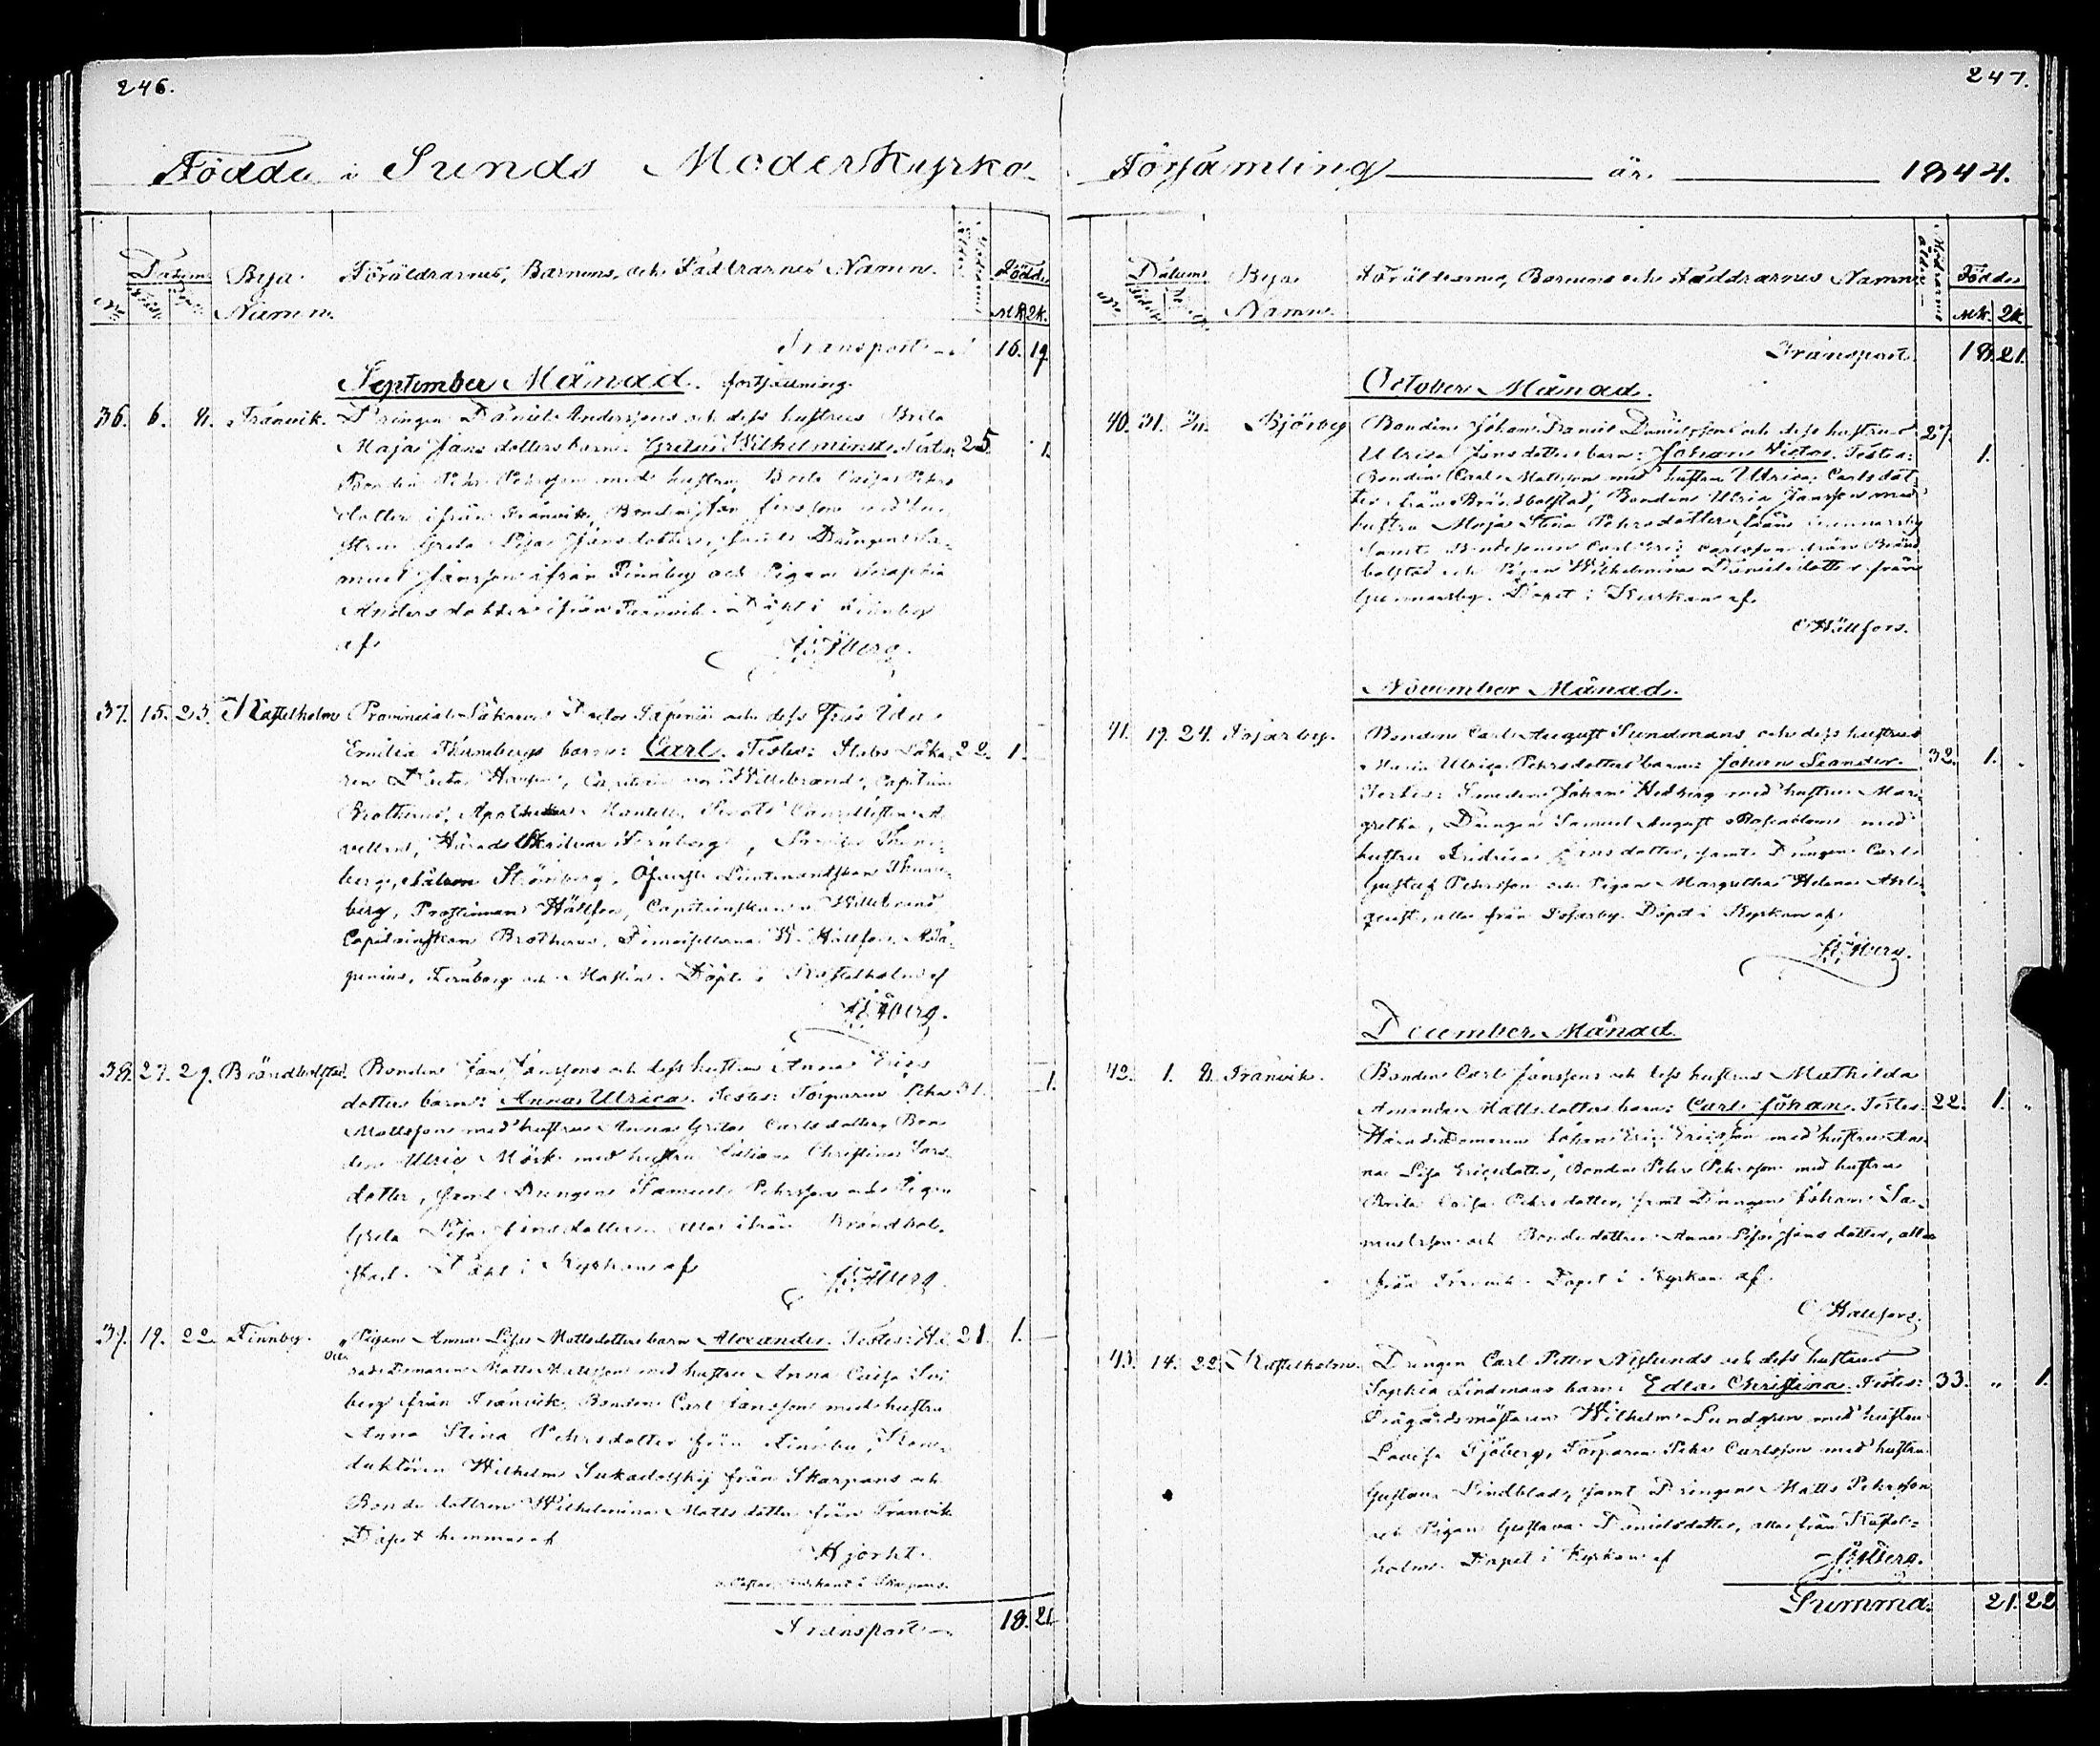 246.
Födde i Sunds Moderkyrko
Datum Bya Föräldrarnes, Barnens, och Faddrarnes Namn. Födde
Namn. Mk. 2k.
Transport 16. 19.
September Månad. fortsättning.
36. 6. 8. Tranvik. Drängen Daniel Anderssons och dess hustrus Brita
Maja Jans dotters barn: Greta Wilhelmina. Testes 25. 1.
Bonden Pehr Pehrsson med hustru Brita Caisa Pehrs
dotter ifrån Tranvik, Bonden Jan Jansson med hu
stru Greta Lisa Jansdotter, samt Drängen Sa
muel Jansson ifrån Finnby och Pigan Seraphia
Anders dotter ifrån Tranvik. Döpt i Finnby
af
37. 15. 23. Kastelholm Provincial Läkaren Doctor och dess Fru Ida
Emilia Thunebergs barn: Carl. Testes: Stabs Läka 22. 1.
ren Doctor Capitain von Willebrand, Capitain
Brotherus, Apothekare
Härads Skrifvare Fernborg, Thune
berg, Strömberg, Öfverste Lieutenantskan Thune
berg, Prostinnan Hällfors, Capitainskan v. Willebrand
Capitainskan Brotherus, Demoisellerna W. Hällfors,
Fernborg och Döpt i Kastelholm af
38. 27. 29. Brändbolstad. Bonden Jan Janssons och dess hustrus Anna Erics
dotters barn: Anna Ulrica. Testes: Torparen Pehr 31. 1.
Mattsson med hustru Anna Greta Carlsdotter, Bon
den Ulric Mörk med hustru Christina Lars
dotter, samt Drängen Samuel Pehrsson och Pigan
Greta Lisa Jansdotter. Alla ifrån Brändbol
stad. Döpt i Kyrkan af
39. 19. 22. Finnby. Pigan Anna Lisa Mattsdotters barn Alexander. Testes: Hä 21. 1.
radsdomaren Matts Mattsson med hustru Anna Caisa
berg från Tranvik, Bonden Carl Jansson med hustru
Anna Stina Pehrsdotter från Finnby, Kon
duktören Wilhelm Sukadolskij från Skarpans och
Bonde dottren Wilhelmina Matts dotter från Tranvik
Döpt hemma af
Hjorht.
Transport 18. 21.
247.
Församling år 1844.
Datum Bya Föräldrarnes, Barnens och Faddrarnes Namn Födde
Namn. Mk. 2k
Transport 18. 21.
October Månad.
40. 31. Björby Bonden Johan Daniel Danielssons och dess hustrus 27.
Ulrica Jansdotters barn: Johan Victor. Testes: 1.
Bonden Carl Mattsson med hustru Ulrica Carlsdot
ter från Brändbolstad, Bonden Ulric Jansson med
hustru Maja Stina Pehrsdotter från Gunnarsby
samt Bondesonen Carl Eric Carlsson från Bränd
bolstad och Pigan Wilhelmina Danielsdotter från
Gunnarsby. Döpt i Kyrkan af
C Hällfors.
November Månad.
41. 19. 24. Tosarby. Bonden Carl August Sundmans och dess hustrus
Maria Ulrica Pehrsdotters barn: Johan Leander. 32. 1.
Testes: Smeden Johan Hedberg med hustru Mar
gretha, Drängen Samuel August med
hustru Fredrica Jansdotter, samt Drängen Carl
Gustaf Pehrsson och Pigan Margretha Helena Ahl
quist, alla från Tosarby. Döpt i Kyrkan af
December Månad.
42. 1. 8. Tranvik. Bonden Carl Janssons och dess hustrus Mathilda
Amanda Mattsdotters barn: Carl Johan. Testes: 22. 1. "
Häradsdomaren Johan Eric Ericsson med hustru An
na Lisa Ericsdotter, Bonden Pehr Pehrsson med hustru
Brita Caisa Pehrsdotter, samt Drängen Johan Sa
muelsson och Bonde dottren Anna Lisa Jans dotter, alla
från Tranvik. Döpt i Kyrkan af
C Hällfors
43. 14. 22. Kastelholm. Drängen Carl Petter Nylunds och dess hustrus
Sophia Lindmans barn: Edla Christina. Testes: 33. " 1.
Trägårdsmästaren Wilhelm Lundgren med hustru
Lovisa Sjöberg, Torparen Pehr Carlsson med hustru
Gustava Lindblad, samt Drängen Matts Pehrsson
och Pigan Gustava Danielsdotter, alla från Kastel=
holm. Döpt i Kyrkan af
Summa. 21. 22